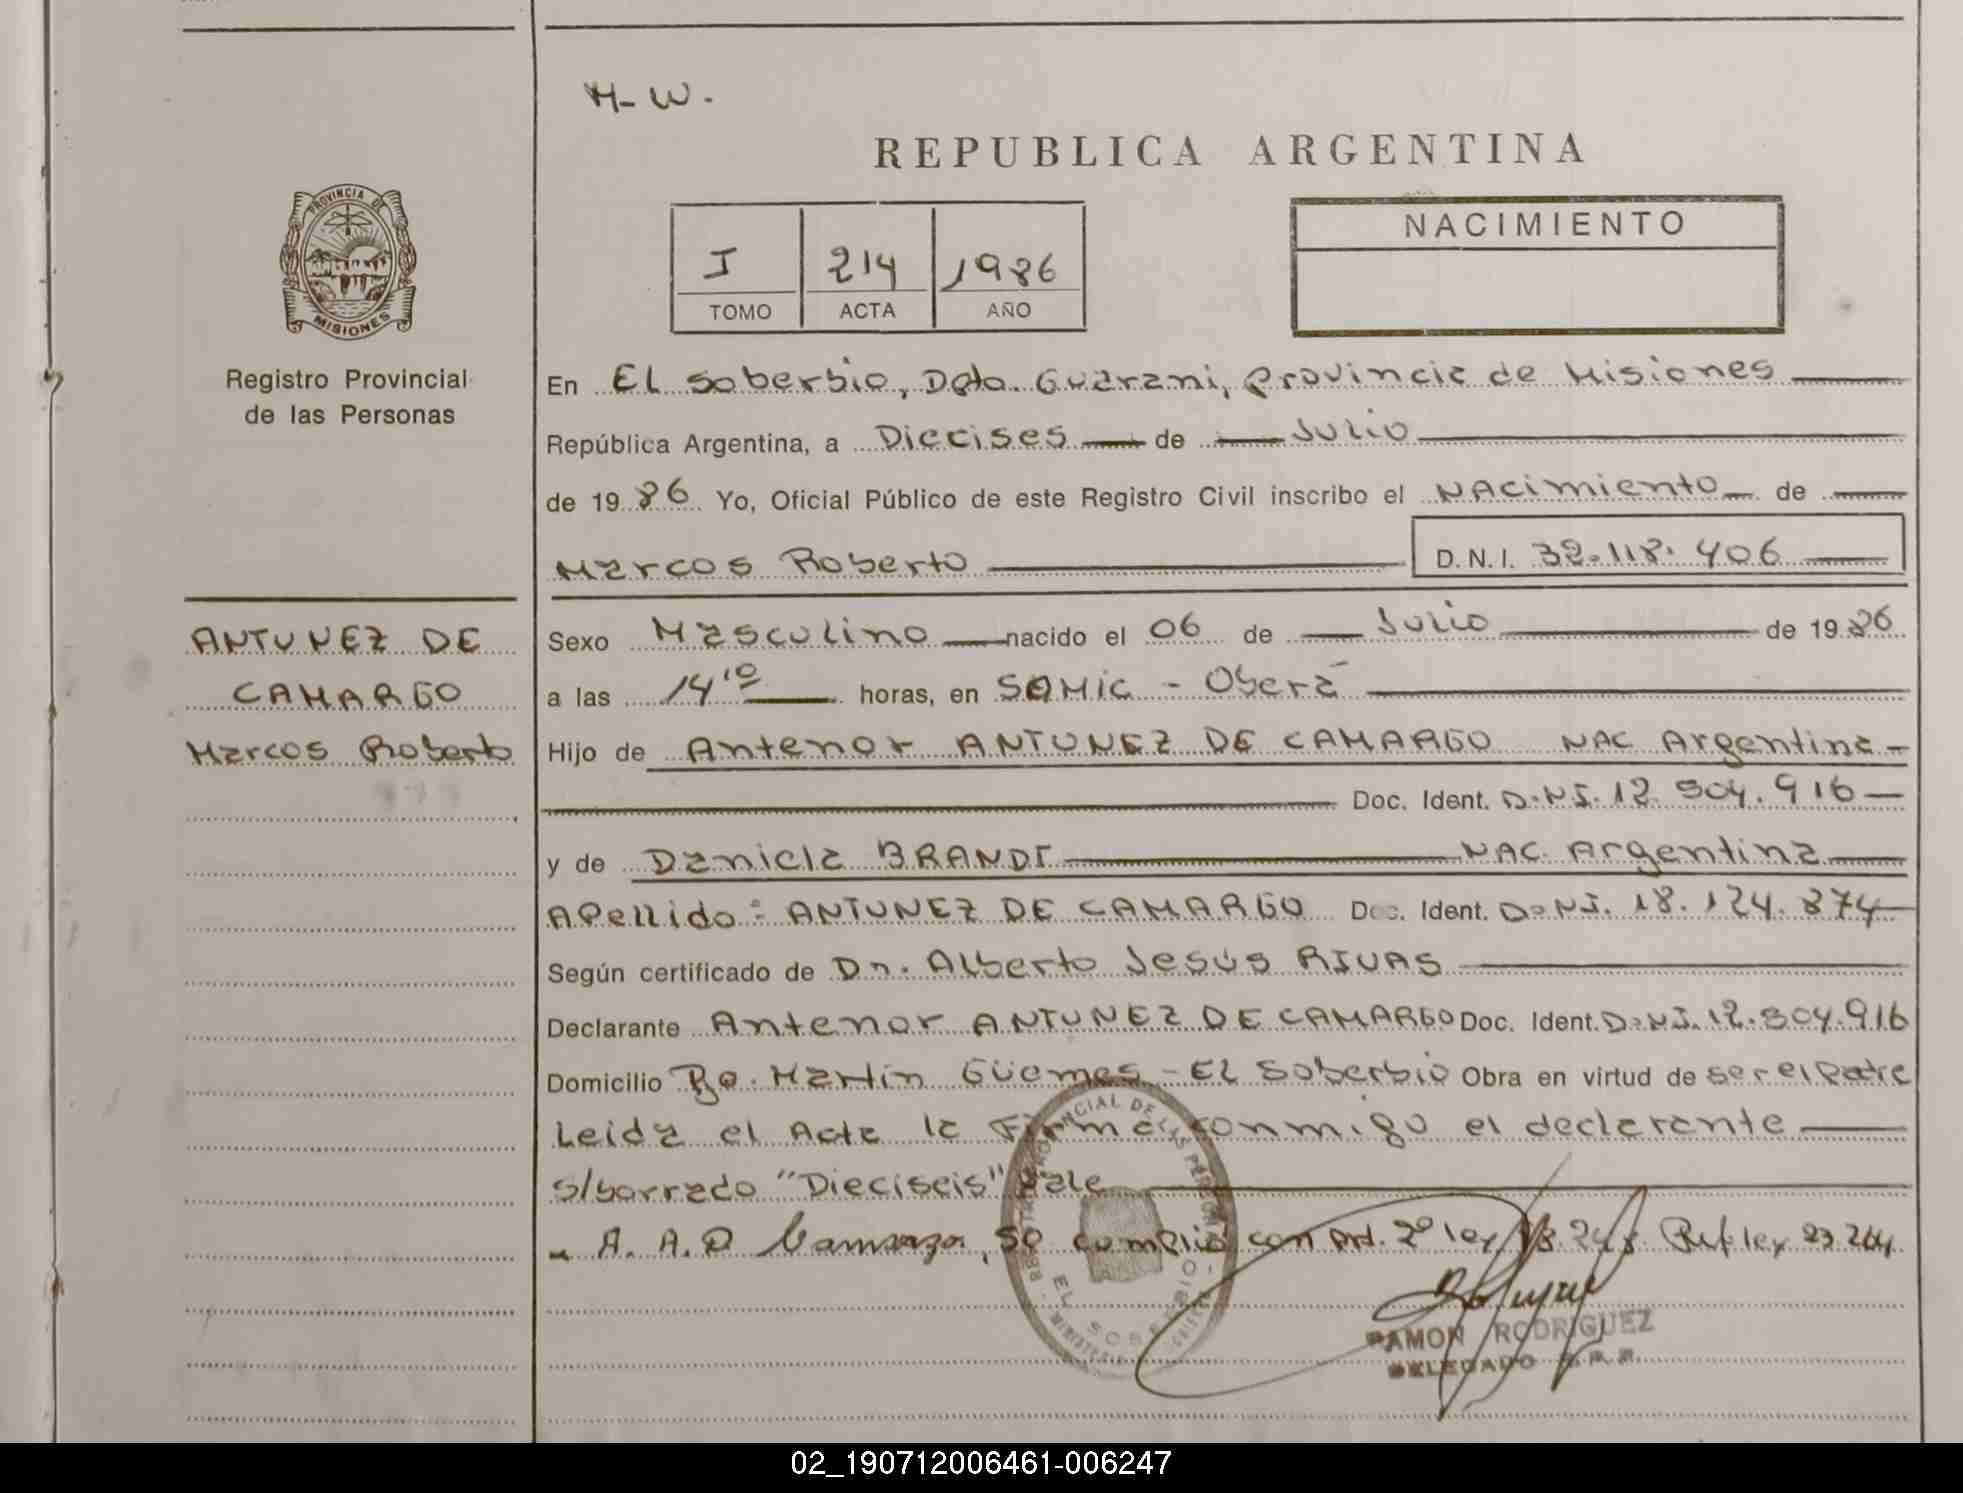 H-W.
REPUBLICA ARGENTINA
PROVINCIA DE
MISIONES
Registro Provincial
de las Personas
I 214 1986
TOMO ACTA AÑO
NACIMIENTO
En El Soberbio, Dpto. Guarani, Provincia de Misiones
República Argentina, a Diecises de Julio
de 1986 Yo, Oficial Público de este Registro Civil inscribo el NAcimiento de
Marcos Roberto D.N.I. 32.118.406
ANTUNEZ DE
CAMARGO
Marcos Roberto
Sexo Masculino nacido el 06 de Julio de 1986
a las 14,10 horas, en SAMic - Oberá
Hijo de Antenor ANTUNEZ DE CAMARGO NAC Argentina
Doc. Ident. D.N.I. 12.304.916
y de Daniela BRANDT NAC. Argentina
Apellido: ANTUNEZ DE CAMARGO Doc. Ident. D.N.I. 18.124.374
Según certificado de Dn. Alberto Jesús RIVAS
Declarante Antenor ANTUNEZ DE CAMARGO Doc. Ident. D.N.I. 12.304.916
Domicilio Bo. Martin Güemes - El Soberbio Obra en virtud de ser el Padre
Leida el Acta la Firma conmigo el declarante
s/borrado "Dieciseis" Vale
A. A. D Camargo, Se cumplió con Art. 2º ley 18.248 Ref ley 23.264
EL SOBERBIO
RAMON RODRIGUEZ
DELEGADO R.P.P.
02_190712006461-006247